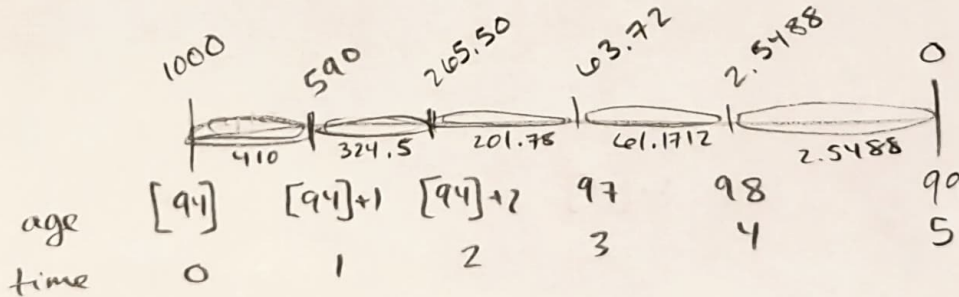 1000 590 265.50 63.72 2.5488 0
410 324.5 201.78 61.1712 2.5488
age [94] [94]+1 [94]+2 97 98 99
time 0 1 2 3 4 5